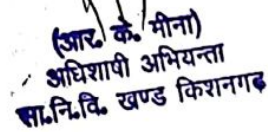 (आर. के. मीना)
अधिशाषी अभियन्ता
सा.नि.वि. खण्ड किशनगढ